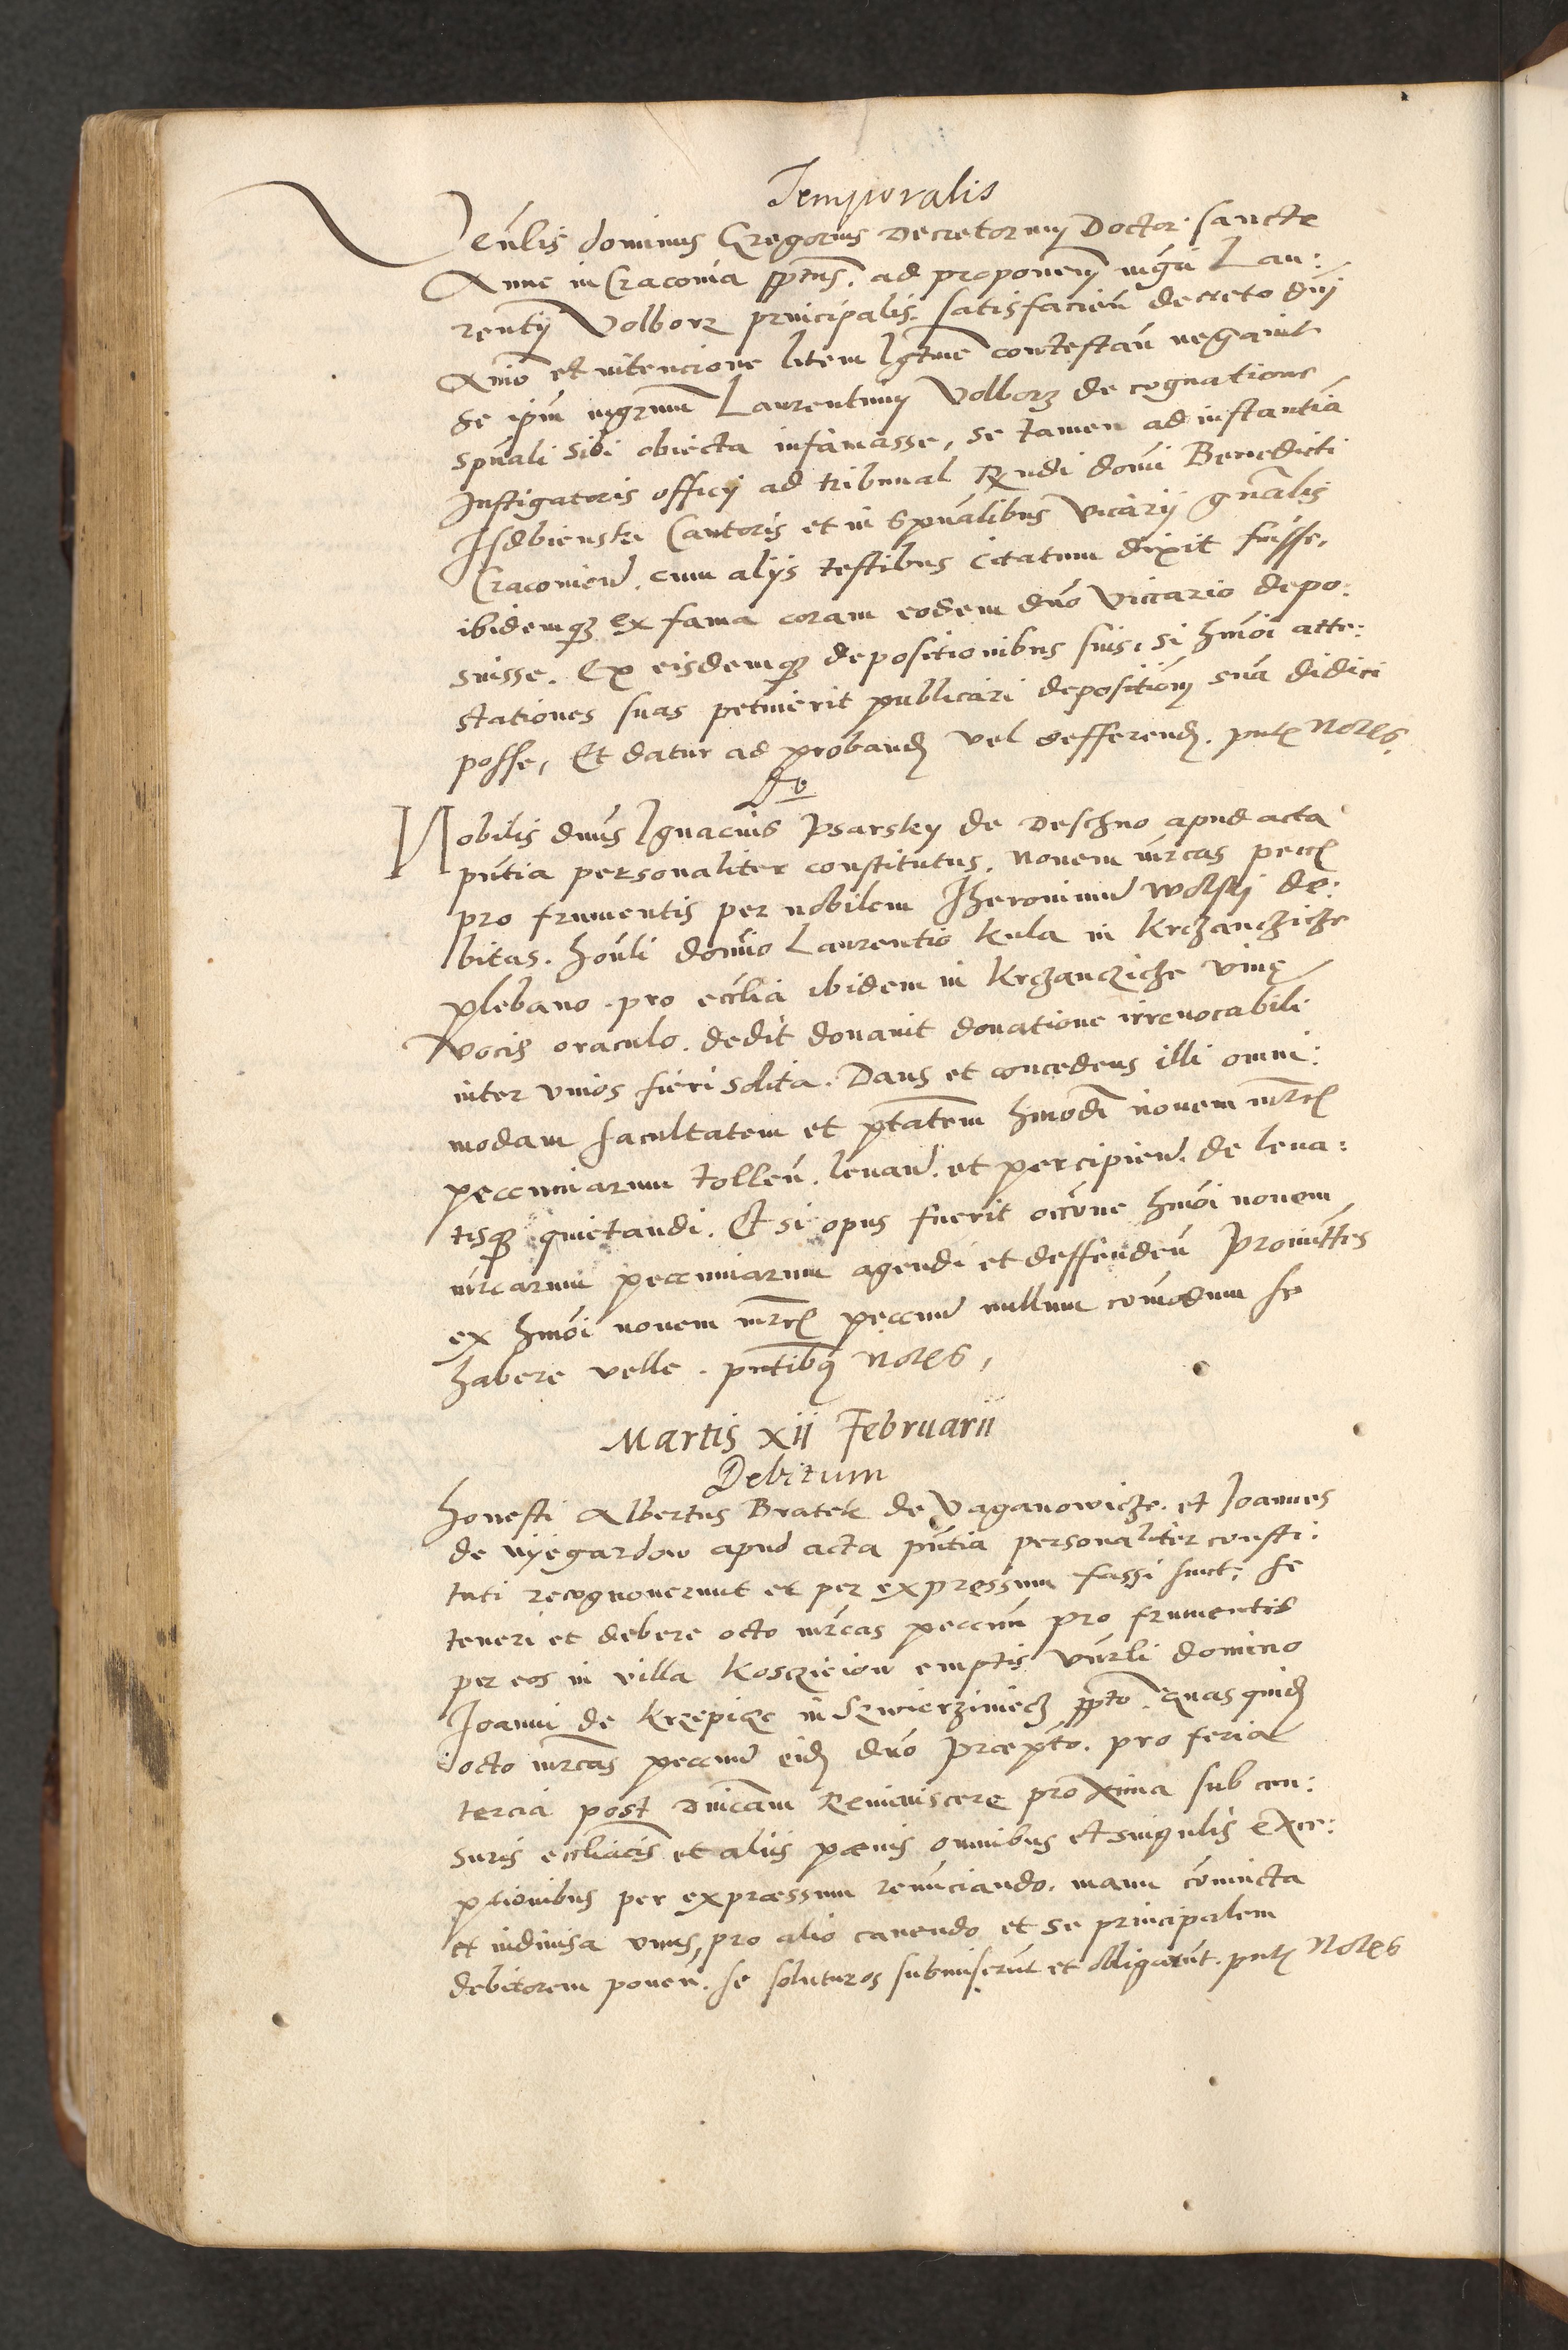 Temporalis
Venlis dominus Gregorius Decretorum Doctor sancte
Anne in Cracovia ppttus. ad proponem mgri Lau:
rentij Volborz principalis. satisfacien decreto dni
Anio et intencione litem lgttme contestan negavit
se ipm mgrum Laurentium Volborz de cognatione
spuali sibi obiecta infamasse, se tamen ad instantia
Instigatoris officij ad tribunal Rndi domi Benedicti
Isdbienski Cantoris et in spualibus vicarij gnalis
Cracovien. cum alijs testibus citatum dixit fuisse,
ibidemq ex fama coram eodem dno viccario depo:
suisse. Ex eisdemq depositionibus suis, si hmoi atte:
stationes suas petierit publicari deposition sua didici
posse, Et datur ad proband vel defferend. pntt Nores.
Do
Nobilis dnus Ignacius Psarsky de Deschno apud acta
pntia personaliter constitutus. novem mrcas pecc
pro frumentis per nobilem Iheronimu Wolsky de:
bitas. honli domino Laurentio Kula in Krczanczicze
plebano. pro ecclia ibidem in Krczanczicze vive
vocis oraculo. dedit donavit donatione irrevocabili
inter vivos fieri solita. Dans et concedens illi omni:
modam facultatem et ptatem hmodi novem mrc
peccuniarum tollen. levan. et percipien. de leva:
tisq quietandi. Et si opus fuerit occone hmoi novem
mrcarum peccuniarum agendi et deffenden Promittes
ex hmoi novem mrc peccun nullum comodum se
habere velle. pntibq Nores,
Martis xii Februarii
Debitum
Honesti Albertus Bratek de Vaganowicze. et Joannes
de nyegardow apud acta pntia personaliter consti:
tuti recognoverunt et per expressum fassi sunt, se
teneri et debere octo mrcas peccun pro frumentis
per eos in villa Kosczieiow emptis Vnrli domino
Joanni de Krzepicze in Szwierziniecz ppto. quas quid
octo mrcas peccun eid dno Praepto. pro feria
tercia post dnicam Reminiscere proxima sub cen:
suris eccliacis et aliis paenis omnibus et singulis exce:
ptionibus per expraessum renunciando. manu coniuncta
et indivisa unus, pro alio cavendo et se principalem
debitorem ponen. se soluturos submiserunt et obligarunt. pntt Nores